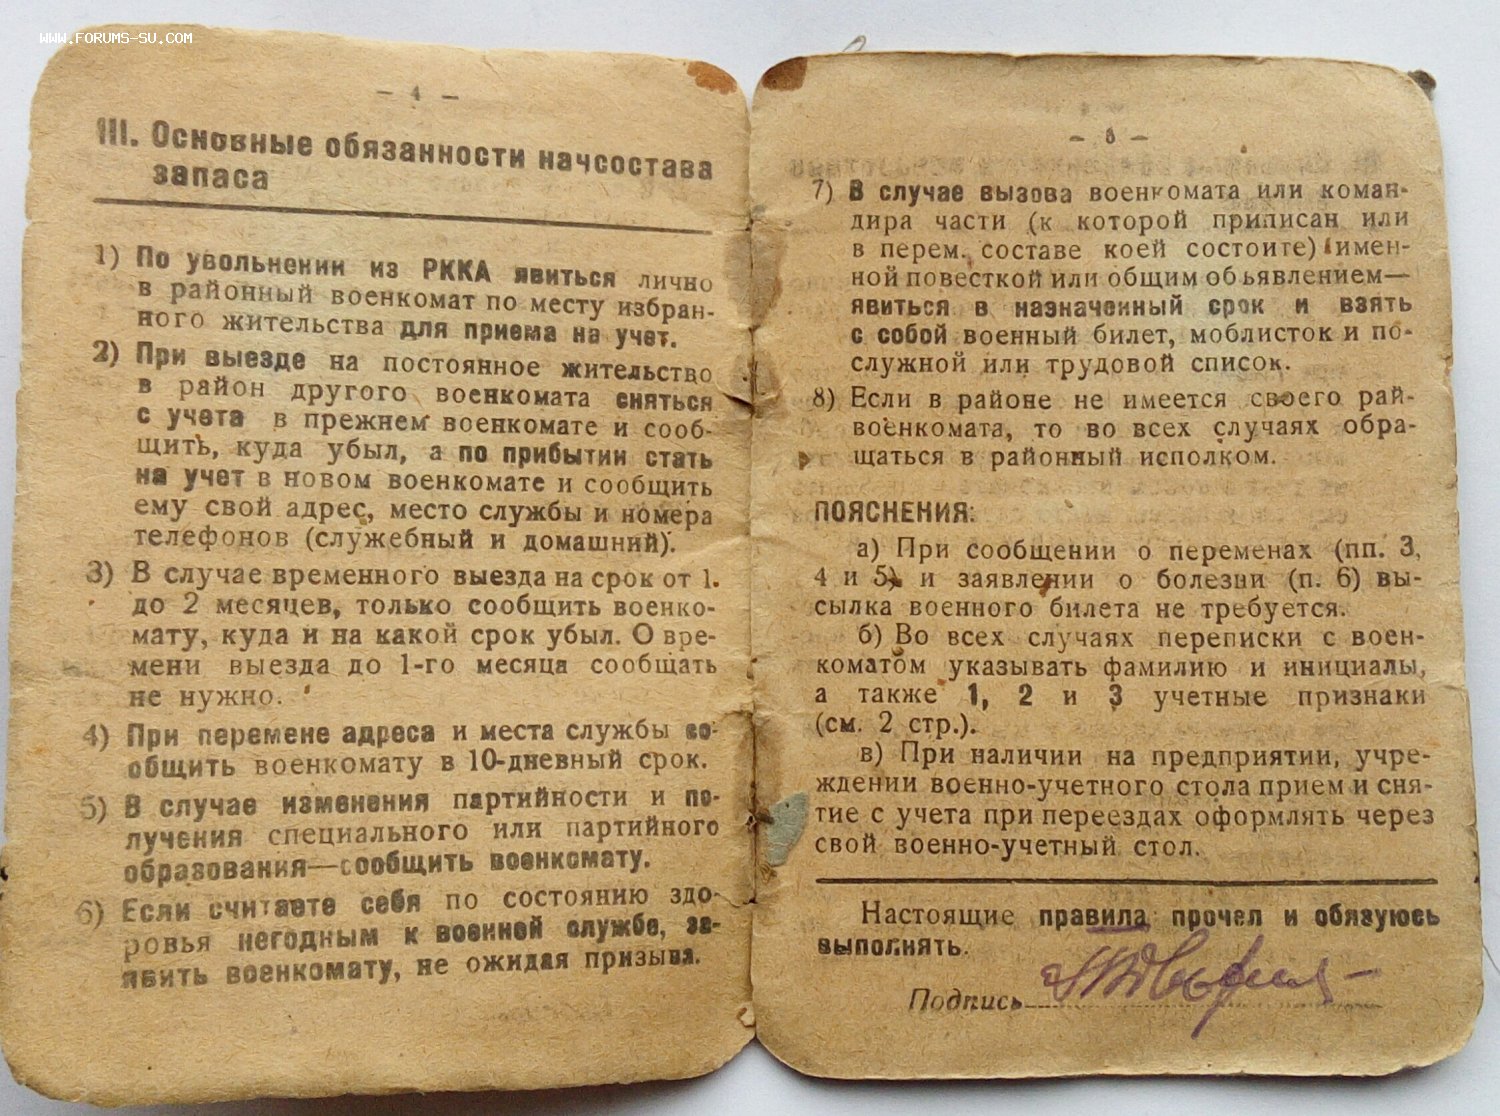 WWW.FORUMS-SU.COM
— 4 —
III. Основные обязанности начсостава
запаса
1) По увольнении из РККА явиться лично
в районный военкомат по месту избран-
ного жительства для приема на учет.
2) При выезде на постоянное жительство
в район другого военкомата сняться
с учета в прежнем военкомате и сооб-
щить, куда убыл, а по прибытии стать
на учет в новом военкомате и сообщить
ему свой адрес, место службы и номера
телефонов (служебный и домашний).
3) В случае временного выезда на срок от 1.
до 2 месяцев, только сообщить военко-
мату, куда и на какой срок убыл. О вре-
мени выезда до 1-го месяца сообщать
не нужно.
4) При перемене адреса и места службы со-
общить военкомату в 10-дневный срок.
5) В случае изменения партийности и по-
лучения специального или партийного
образования—сообщить военкомату.
6) Если считаете себя по состоянию здо-
ровья негодным к военной службе, за-
явить военкомату, не ожидая призыва.
7) В случае вызова военкомата или коман-
дира части (к которой приписан или
в перем. составе коей состоите) имен-
ной повесткой или общим объявлением—
явиться в назначенный срок и взять
с собой военный билет, моблисток и по-
служной или трудовой список.
8) Если в районе не имеется своего рай-
военкомата, то во всех случаях обра-
щаться в районный исполком.
ПОЯСНЕНИЯ:
а) При сообщении о переменах (пп. 3,
4 и 5) и заявлении о болезни (п. 6) вы-
сылка военного билета не требуется.
б) Во всех случаях переписки с воен-
коматом указывать фамилию и инициалы,
а также 1, 2 и 3 учетные признаки
(см. 2 стр.).
в) При наличии на предприятии, учре-
ждении военно-учетного стола прием и сня-
тие с учета при переездах оформлять через
свой военно-учетный стол.
Настоящие правила прочел и обязуюсь
выполнять.
Подпись